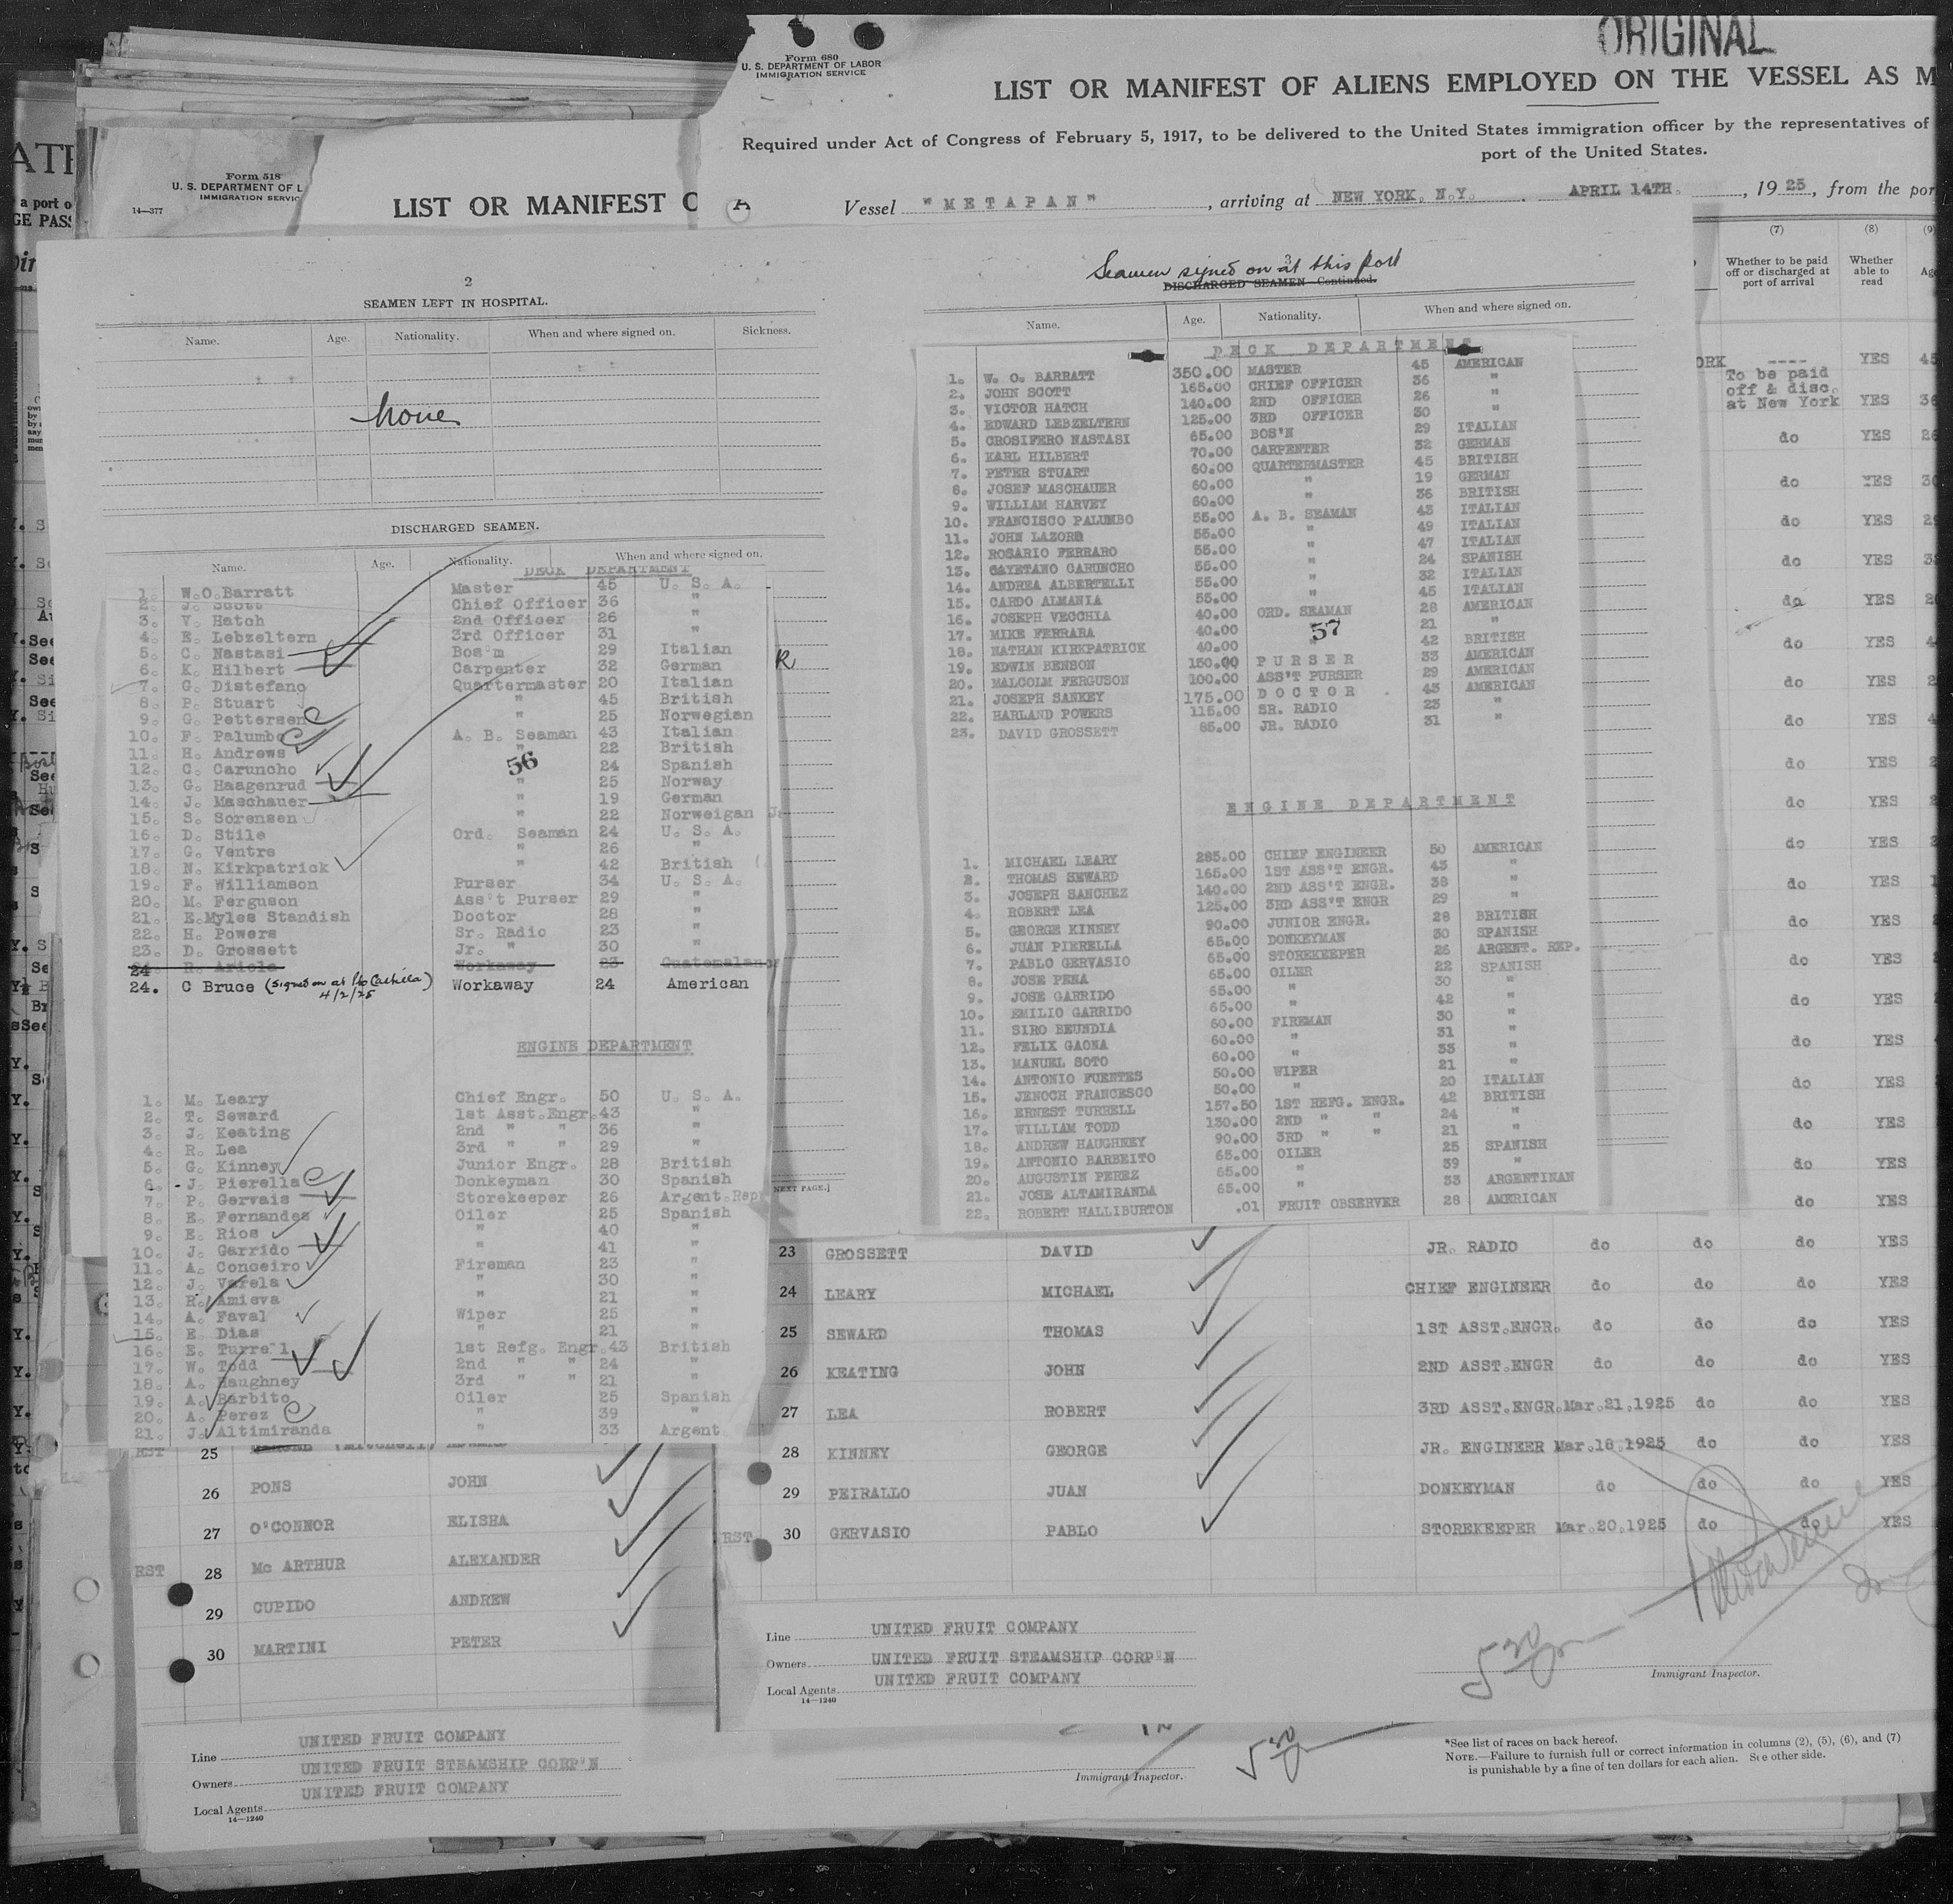 ORIGINAL
Form 680
U. S. DEPARTMENT OF LABOR
IMMIGRATION SERVICE
LIST OR MANIFEST OF ALIENS EMPLOYED ON THE VESSEL AS M
Required under Act of Congress of February 5, 1917, to be delivered to the United States immigration officer by the representatives of
port of the United States.
Vessel "METAPAN", arriving at NEW YORK, N.Y. APRIL 14TH., 1925, from the por
Form 518
U. S. DEPARTMENT OF L
IMMIGRATION SERVIC
14—377
LIST OR MANIFEST O
A
2
SEAMEN LEFT IN HOSPITAL.
Name. Age. Nationality. When and where signed on. Sickness.
None
DISCHARGED SEAMEN.
Name. Age. Nationality. When and where signed on.
DECK DEPARTMENT
1. W.O.Barratt Master 45 U. S. A.
2. J. Scott Chief Officer 36 "
3. V. Hatch 2nd Officer 26 "
4. E. Lebzeltern 3rd Officer 31 "
5. C. Nastasi Bos'm 29 Italian
6. K. Hilbert Carpenter 32 German R
7. G. Distefano Quartermaster 20 Italian
8. P. Stuart " 45 British
9. G. Pettersen " 25 Norwegian
10. F. Palumbo A. B. Seaman 43 Italian
11. H. Andrews " 22 British
12. C. Caruncho 24 Spanish
56
13. G. Haagenrud " 25 Norway
14. J. Maschauer " 19 German
15. S. Sorensen " 22 Norweigan
16. D. Stile Ord. Seaman 24 U. S. A.
17. G. Ventre " 26 "
18. N. Kirkpatrick " 42 British
19. F. Williamson Purser 34 U. S. A.
20. M. Ferguson Ass't Purser 29 "
21. E.Myles Standish Doctor 28 "
22. H. Powers Sr. Radio 23 "
23. D. Grossett Jr. " 30 "
24 R. Ariola Workaway 23 Guatemalan
24. C Bruce (Signed on at Pto Castilla) Workaway 24 American
4/2/25
ENGINE DEPARTMENT
1. M. Leary Chief Engr. 50 U. S. A.
2. T. Seward 1st Asst.Engr.43 "
3. J. Keating 2nd " " 36 "
4. R. Lea 3rd " " 29 "
5. G. Kinney Junior Engr. 28 British
6. J. Pierella Donkeyman 30 Spanish
7. P. Gervais Storekeeper 26 Argent.Rep
8. E. Fernandes Oiler 25 Spanish
9. E. Rios " 40 "
10. J. Garrido " 41 "
11. A. Conceiro Fireman 23 "
12. J. Varela " 30 "
13. R. Amieva " 21 "
14. A. Faval Wiper 25 "
15. E. Dias " 21 "
16. E. Turrell 1st Refg. Engr.43 British
17. W. Todd 2nd " " 24 "
18. A. Haughney 3rd " " 21 "
19. A. Barbito Oiler 25 Spanish
20. A. Perez " 39 "
21. J. Altimiranda " 33 Argent.
3
Seamen signed on at this port
DISCHARGED SEAMEN—Continued.
Name. Age. Nationality. When and where signed on.
DECK DEPARTMENT
1. W. O. BARRATT 350.00 MASTER 45 AMERICAN
2. JOHN SCOTT 165.00 CHIEF OFFICER 36 "
3. VICTOR HATCH 140.00 2ND OFFICER 26 "
4. EDWARD LEBZELTERN 125.00 3RD OFFICER 30 "
5. CROSIFERO NASTASI 65.00 BOS'N 29 ITALIAN
6. KARL HILBERT 70.00 CARPENTER 32 GERMAN
7. PETER STUART 60.00 QUARTERMASTER 45 BRITISH
8. JOSEF MASCHAUER 60.00 " 19 GERMAN
9. WILLIAM HARVEY 60.00 " 36 BRITISH
10. FRANCISCO PALUMBO 55.00 A. B. SEAMAN 43 ITALIAN
11. JOHN LAZORO 55.00 " 49 ITALIAN
12. ROSARIO FERRARO 55.00 " 47 ITALIAN
13. CAYETANO CARUNCHO 55.00 " 24 SPANISH
14. ANDREA ALBERTELLI 55.00 " 32 ITALIAN
15. CARDO ALMANIA 55.00 " 45 ITALIAN
16. JOSEPH VECCHIA 40.00 ORD. SEAMAN 28 AMERICAN
17. MIKE FERRARA 40.00 21 "
57
18. NATHAN KIRKPATRICK 40.00 42 BRITISH
19. EDWIN BENSON 150.00 PURSER 33 AMERICAN
20. MALCOLM FERGUSON 100.00 ASS'T PURSER 29 AMERICAN
21. JOSEPH SANKEY 175.00 DOCTOR 43 AMERICAN
22. HARLAND POWERS 115.00 SR. RADIO 23 "
23. DAVID GROSSETT 85.00 JR. RADIO 31 "
ENGINE DEPARTMENT
1. MICHAEL LEARY 285.00 CHIEF ENGINEER 50 AMERICAN
2. THOMAS SEWARD 165.00 1ST ASS'T ENGR. 43 "
3. JOSEPH SANCHEZ 140.00 2ND ASS'T ENGR. 38 "
4. ROBERT LEA 125.00 3RD ASS'T ENGR 29 "
5. GEORGE KINNEY 90.00 JUNIOR ENGR. 28 BRITISH
6. JUAN PIERELLA 65.00 DONKEYMAN 30 SPANISH
7. PABLO GERVASIO 65.00 STOREKEEPER 26 ARGENT. REP.
8. JOSE PENA 65.00 OILER 22 SPANISH
9. JOSE GARRIDO 65.00 " 30 "
10. EMILIO GARRIDO 65.00 " 42 "
11. SIRO BEUNDIA 60.00 FIREMAN 30 "
12. FELIX GAONA 60.00 " 31 "
13. MANUEL SOTO 60.00 " 33 "
14. ANTONIO FUENTES 50.00 WIPER 21 "
15. JENOCH FRANCESCO 50.00 " 20 ITALIAN
16. ERNEST TURRELL 157.50 1ST REFG. ENGR. 42 BRITISH
17. WILLIAM TODD 130.00 2ND " " 24 "
18. ANDREW HAUGHNEY 90.00 3RD " " 21 "
19. ANTONIO BARBEITO 65.00 OILER 25 SPANISH
20. AUGUSTIN PEREZ 65.00 " 39 "
21. JOSE ALTAMIRANDA 65.00 " 33 ARGENTINAN
22. ROBERT HALLIBURTON .01 FRUIT OBSERVER 28 AMERICAN
NEXT PAGE.]
(7) (8) (9)
Whether to be paid off or discharged at port of arrival
Whether able to read
ORK ---- YES 45
To be paid
off & disc.
at New York YES 36
do YES 26
do YES 30
do YES
do YES
do YES
do YES
do YES
do YES
do YES
do YES
do YES
do YES
do YES
do YES
do YES
do YES
do YES
do YES
do YES
do YES
23 GROSSETT DAVID JR. RADIO do do do YES
24 LEARY MICHAEL CHIEF ENGINEER do do do YES
25 SEWARD THOMAS 1ST ASST.ENGR. do do do YES
26 KEATING JOHN 2ND ASST.ENGR do do do YES
27 LEA ROBERT 3RD ASST.ENGR.Mar.21.1925 do do YES
28 KINNEY GEORGE JR. ENGINEER Mar.18.1925 do do YES
29 PEIRALLO JUAN DONKEYMAN do do do YES
RST 30 GERVASIO PABLO STOREKEEPER Mar.20.1925 do do YES
Line UNITED FRUIT COMPANY
Owners UNITED FRUIT STEAMSHIP CORP'N
Local Agents UNITED FRUIT COMPANY
14—1240
Immigrant Inspector.
RST 25
26 PONS JOHN
27 O'CONNOR ELISHA
RST 28 Mc ARTHUR ALEXANDER
29 CUPIDO ANDREW
30 MARTINI PETER
Line UNITED FRUIT COMPANY
Owners UNITED FRUIT STEAMSHIP CORP'N
Local Agents UNITED FRUIT COMPANY
14—1240
Immigrant Inspector.
*See list of races on back hereof.
NOTE.—Failure to furnish full or correct information in columns (2), (5), (6), and (7)
is punishable by a fine of ten dollars for each alien. See other side.